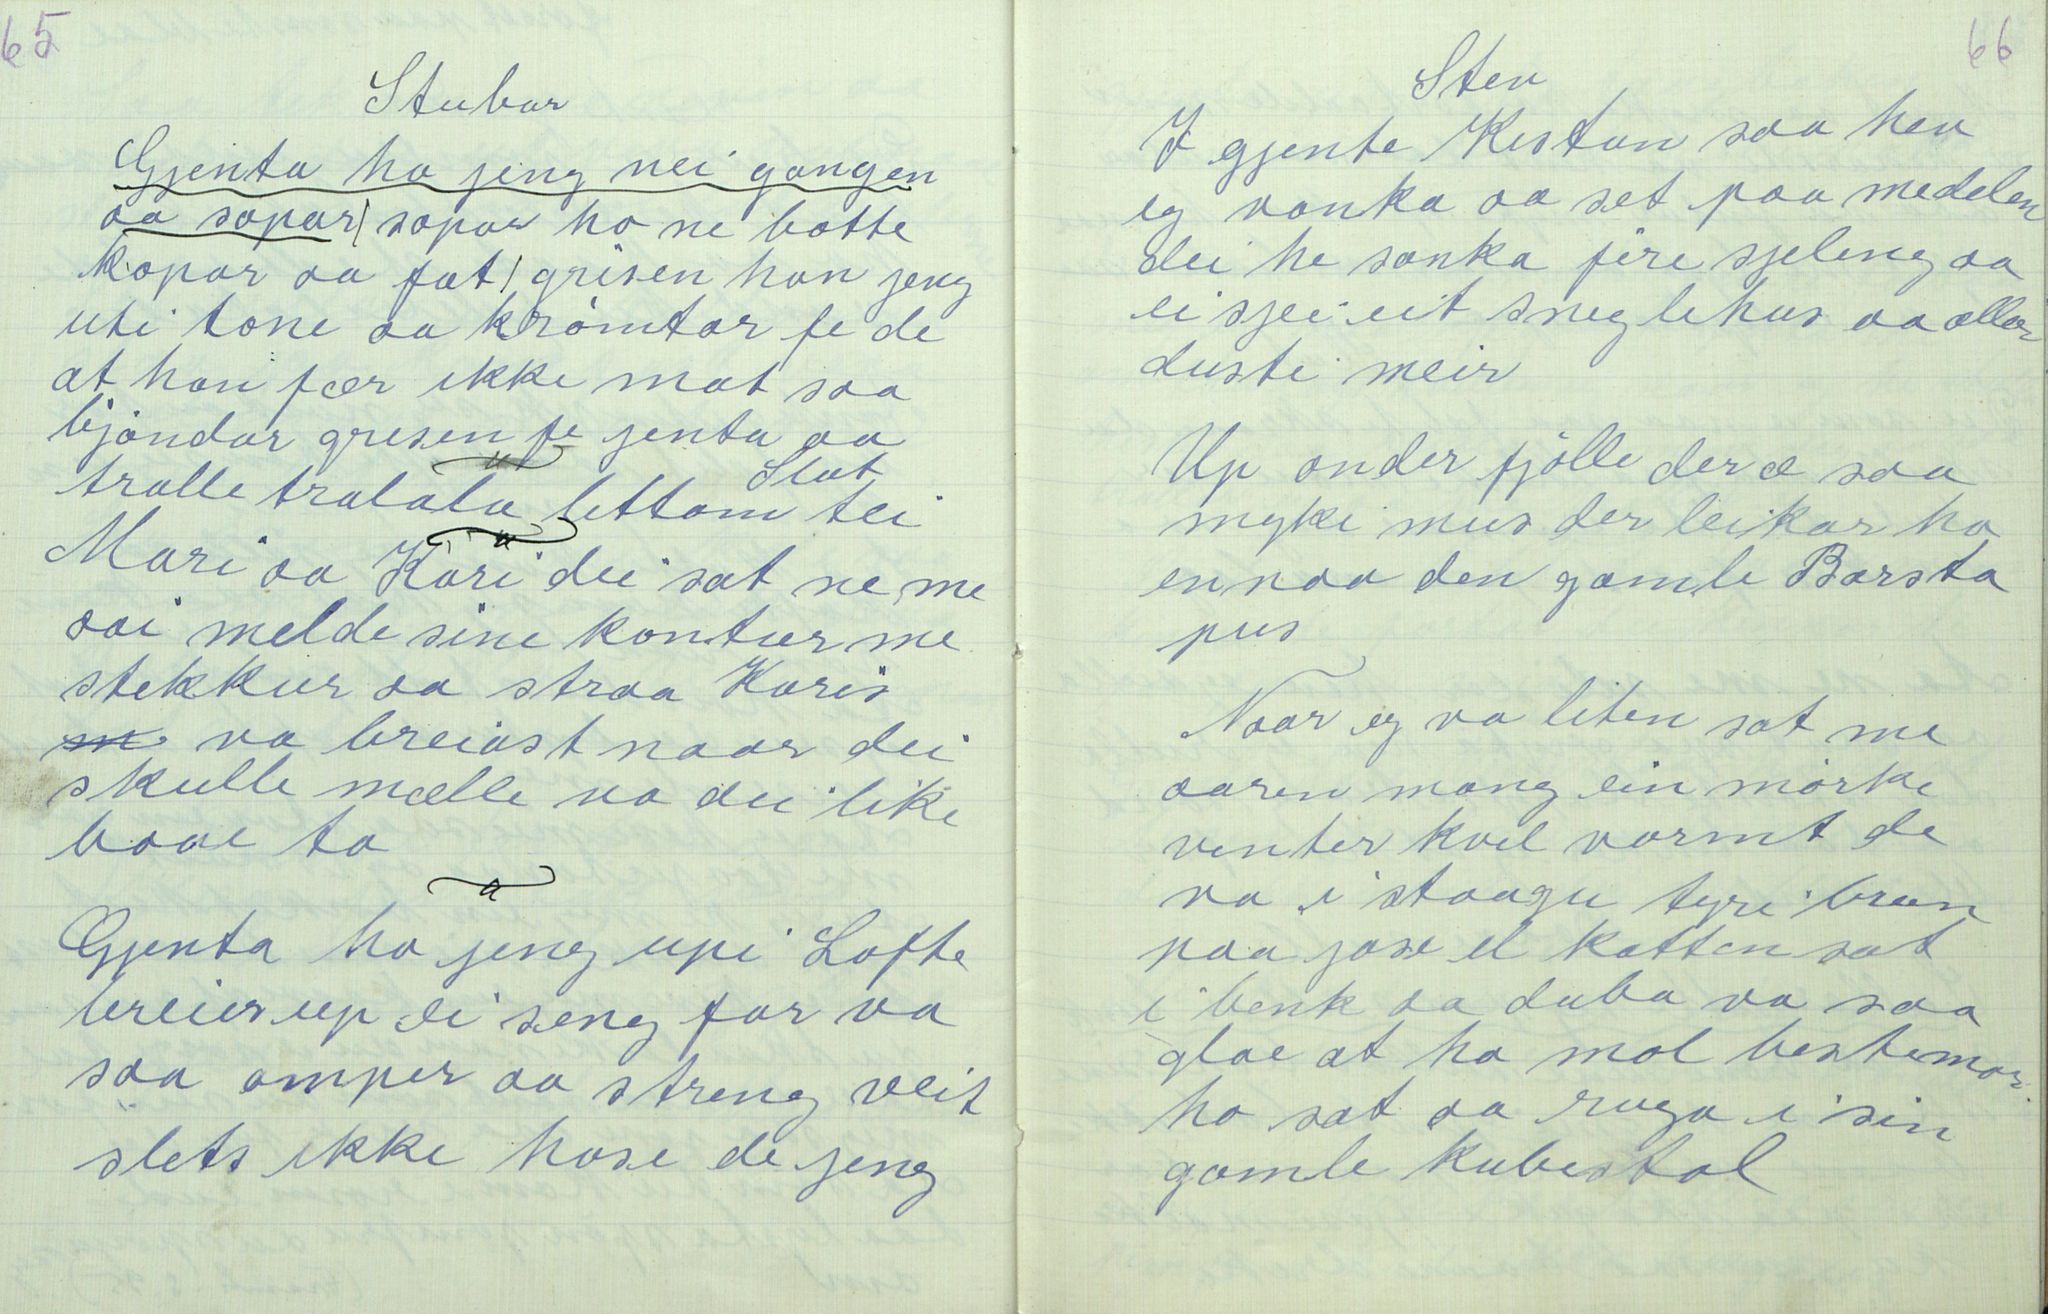 65
Stubar
Gjenta ho jeng nei gangen
oa sopar sopar ho ne botte
kopar oa fat grisen han jeng
uti tone oa krömtar fe de
at han fær ikke mat saa
bjöndar grisen fe jenta oa
tralle tralala lettom tei
Slut
Mari oa Kari dei sat ne me
oai melde sine kontur me
stekkur oa straa Karis
va breiast naar dei
skulle mælle va dei like
baae to
Gjenta ho jeng upi Lofte
breier up ei seng far va
saa amper oa streng veit
slets ikke hose de jeng
66
Stev
I gjente Kistun saa hev
eg vanka oa set paa medelen
dei he sanka fire sjeleng oa
ei sjei eit sneglehus oa allar
duste meir
Up onder fjölle der æ saa
myki mus der leikar ho
ennaa den gamle Barsta
pus
Naar eg va liten sat me
aaren mang ein mörke
venter kvel varmt de
va i staagu tyri bran
paa jose el katten sat
i benk oa duba va saa
glae at ho mol bestemor
ho sat oa ruga i sin
gamle kubestol